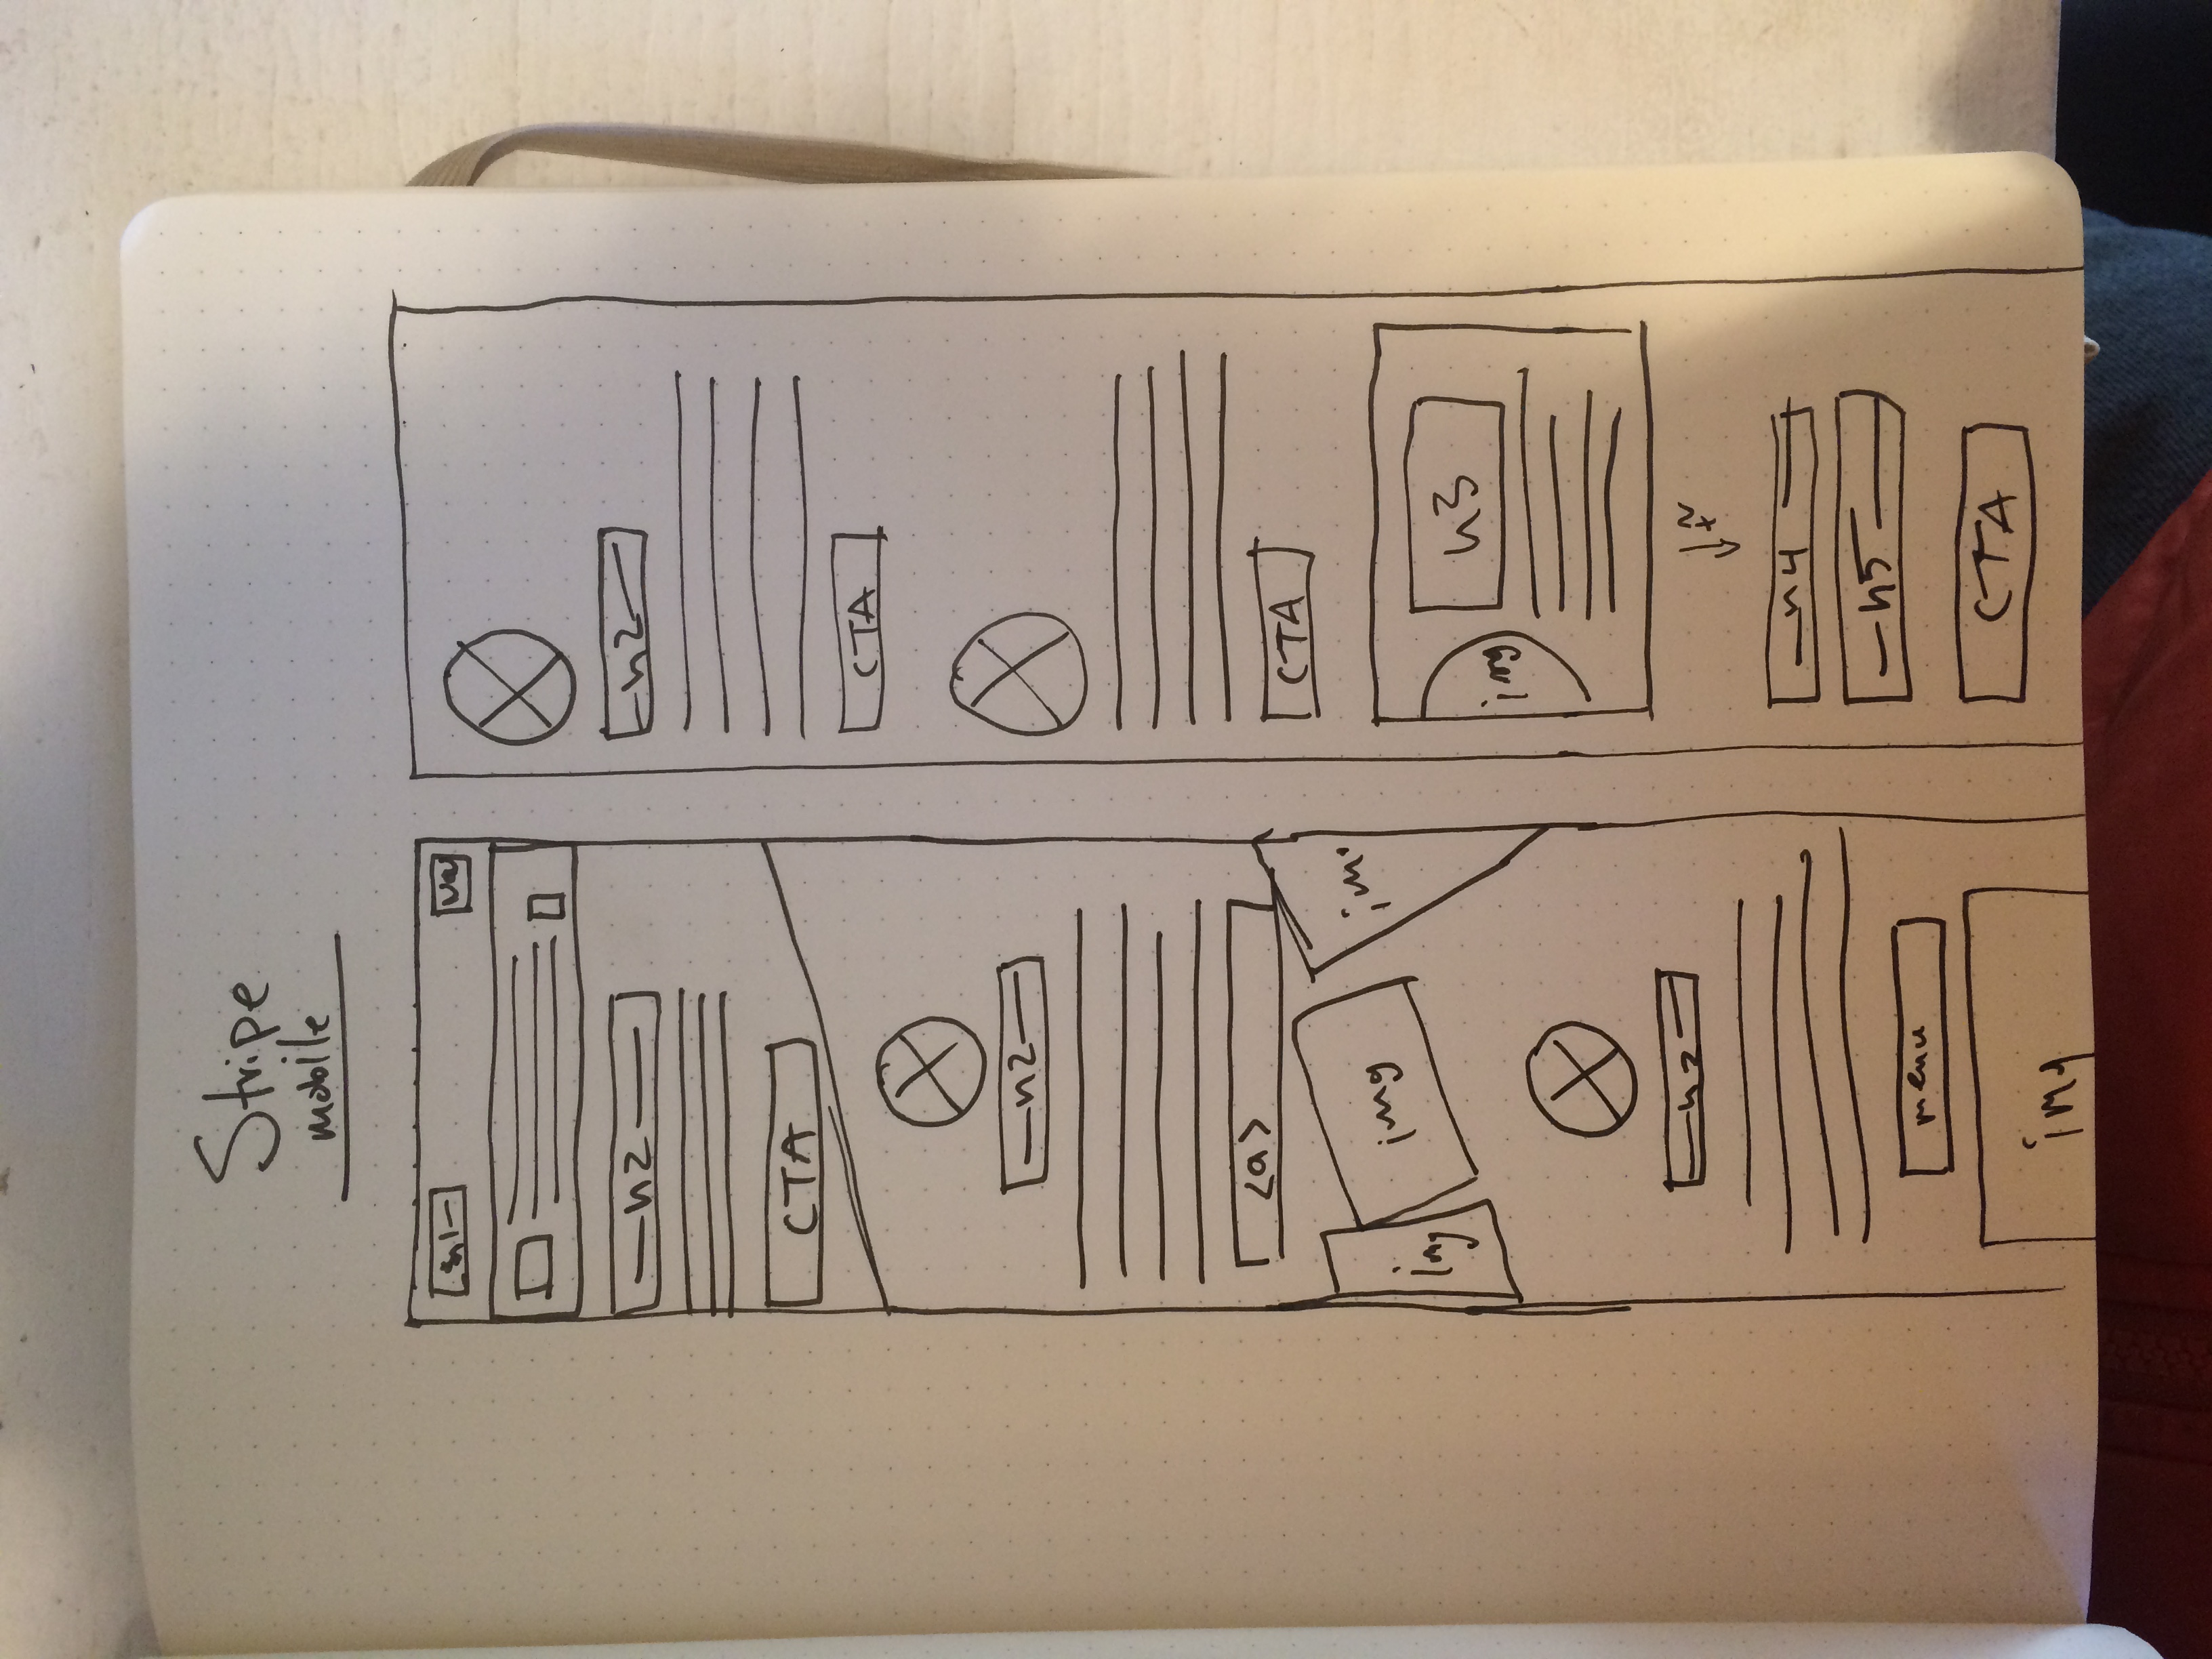 Stripe
mobile
h1
h2
CTA
h2
<a>
img
img
im
h2
menu
img
h2
CTA
CTA
img
h3
h4
h5
CTA